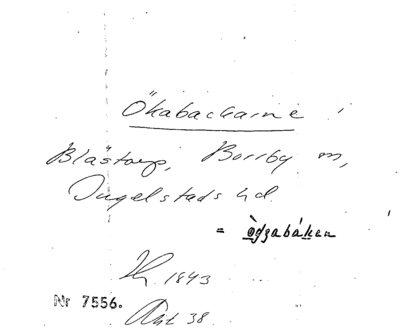 Ökabackarne
Blästorp, Borrby sn,
Ingelstads hd
= ògzabákan
1843
Nr 7556.
Akt 38